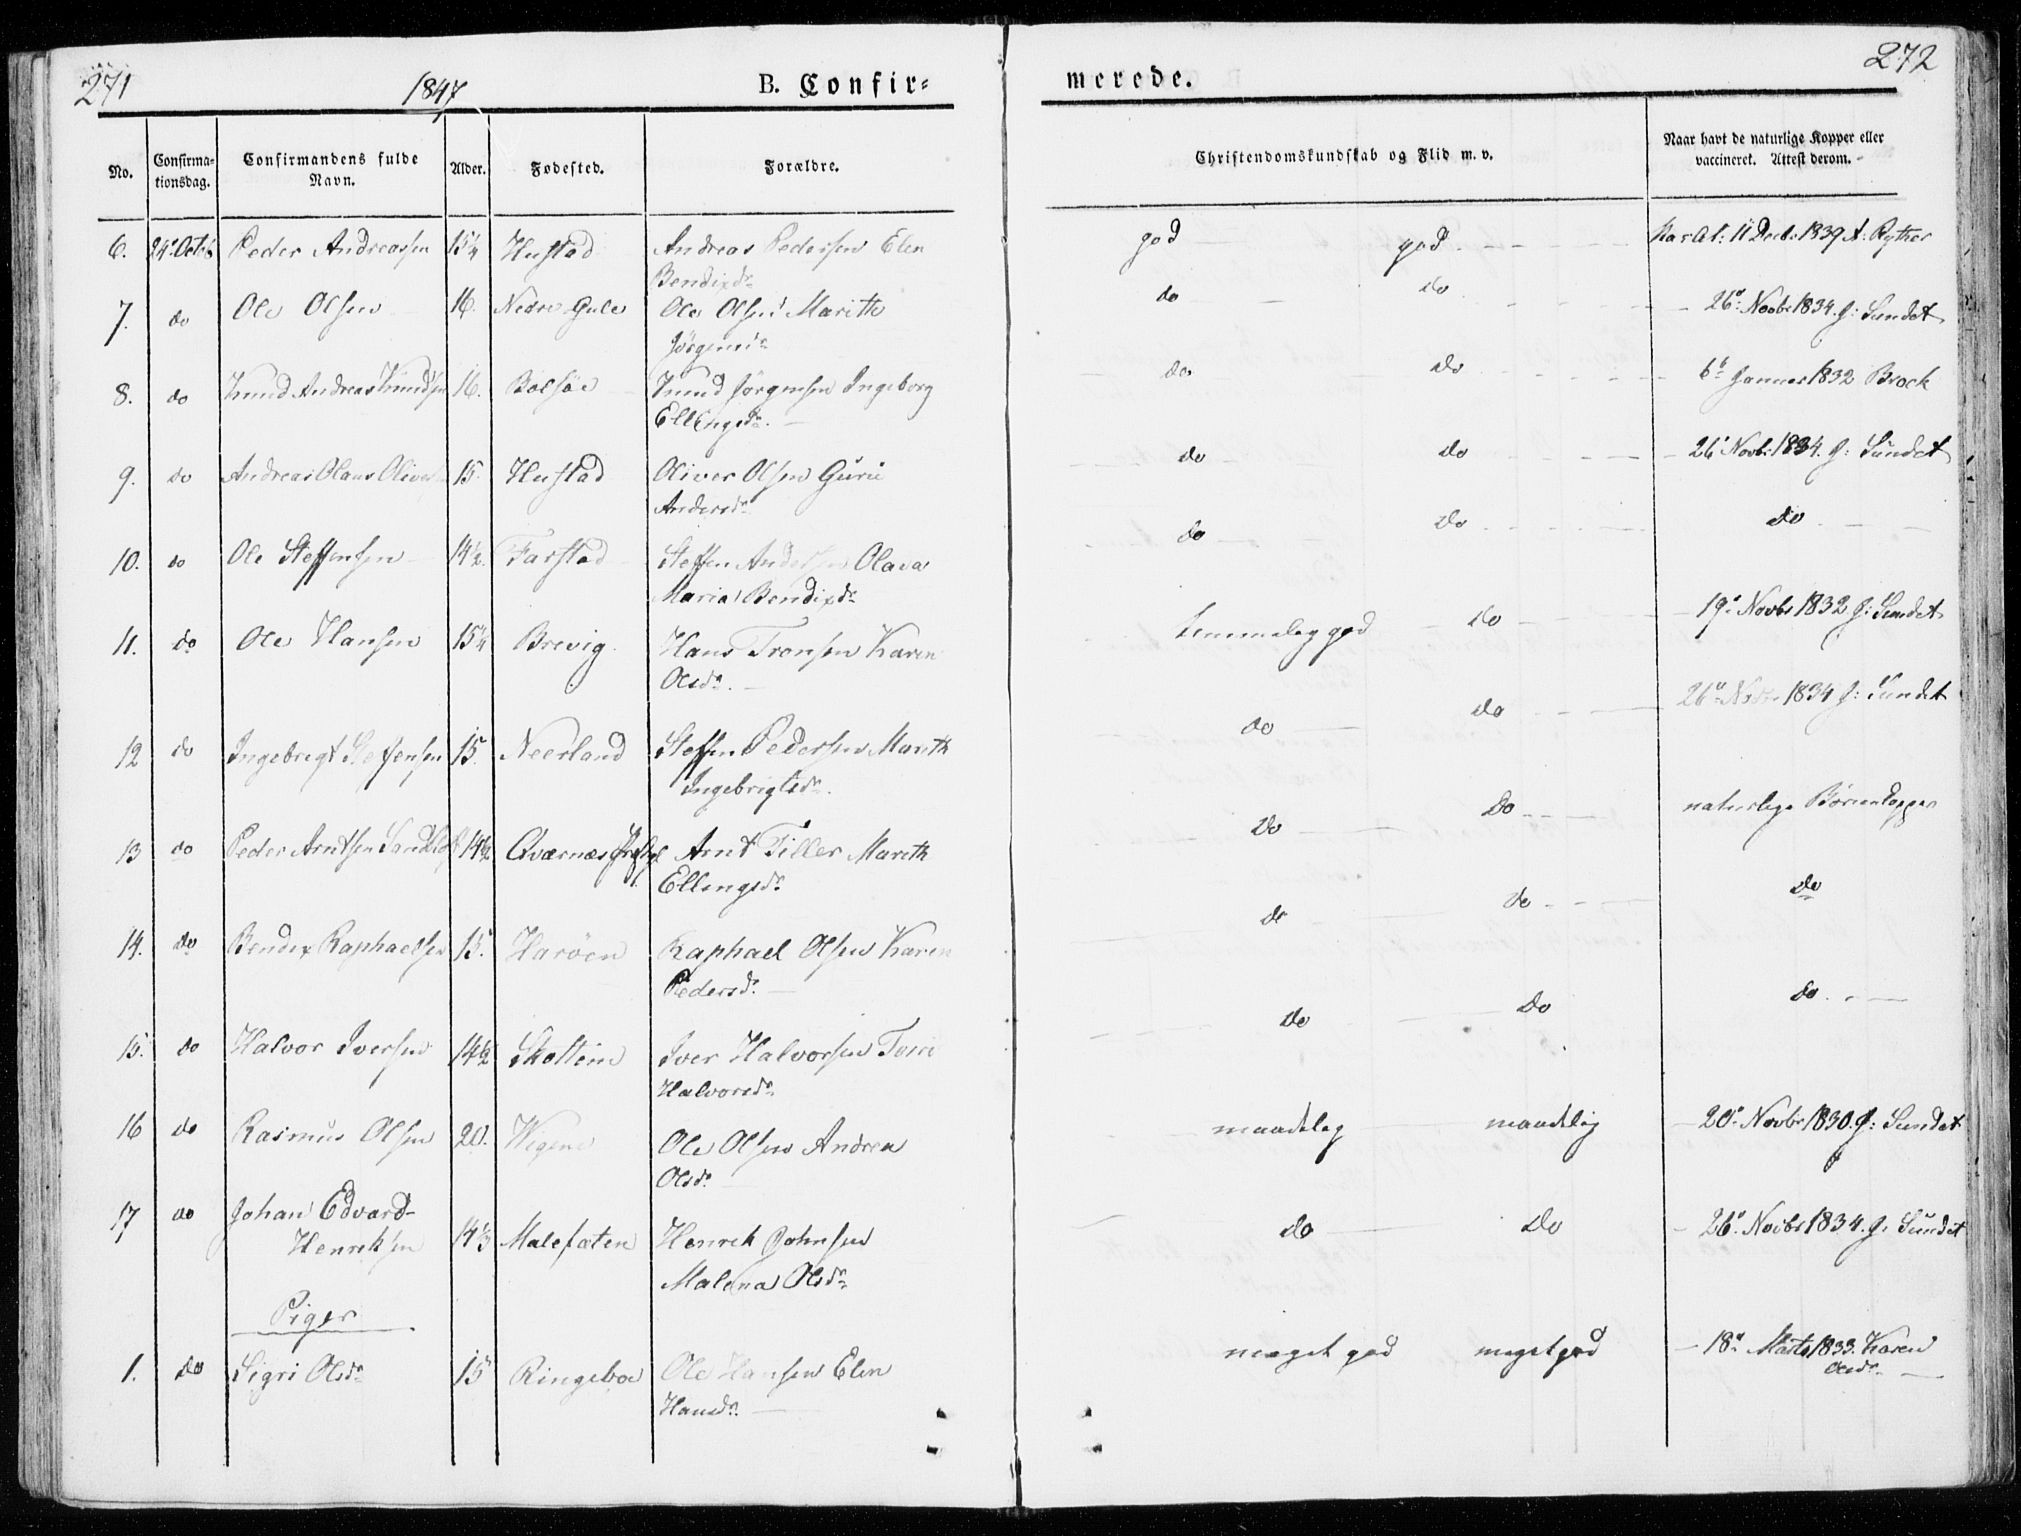 271 1847 B. Confir=
merede. 272
No. Confirma-tionsdag. Confirmandens fulde Navn. Alder. Fødested. Forældre. Christendomskundskab og Flid m. v. Naar havt de naturlige Kopper eller vaccineret. Attest derom.
6. 24. Octob Peder Andreassen 15¼ Hustad Andreas Pedersen Elen god god 11 Decb. 1839 A: Ryther
Bendixdr.
7. do Ole Olsen 16. Nedre Gule Ole Olsen Marith do do 26. Novbr 1834. J: Sundet
Jörgensdr.
8. do Knud Andreas Knudsen 16. Bolsöe Knud Jörgensen Ingeborg do do 6te Januar 1832 Brock
Ellingsdr.
9. do Andreas Olaus Olivers 15. Hustad Oliver Olsen Guru do do 26 Novbr: 1834. J: Sundet
Andersdr.
10. do Ole Steffensen 14½. Farstad Steffen Andersen Olava do do do
Maria Bendixdr.
11. do Ole Hansen 15¼ Brevig Hans Tronsen Karen temmelig god do 19. Novbr 1832 J: Sundet
Olsdr.
12 do Ingebrigt Steffensen 15. Neerland Steffen Pedersen Marith do do 26. Novbr 1834 J: Sundet
Ingebrigtsdr.
13 do Peder Arntsen 14½ Qværnæs Arnt Tiller Marith do do naturlige Börnekopper
Ellingsdr.
14. do Bendix Raphaelsen 15. Haröen Raphael Olsen Karen do do do
Pedersdr.
15. do Halvor Iversen 14½ Skottem Iver Halvorsen do do do
Halvorsdr.
16 do Rasmus Olsen 20. Ole Olsen Andrea maadelig maadelig 20. Novbr 1830. J: Sundet
Olsdr.
17 do Johan Edvard
Henriksen 14⅓ Malefæten Henrik Johnsen do do 26. Novbr 1834. J. Sundet
Malena Olsdr.
Piger
1. do Sigri Olsdr. 15 Ringeboe Ole Hansen Elen meget god meget god 18. Marts 1833. Karen
Hansdr. Olsdr.